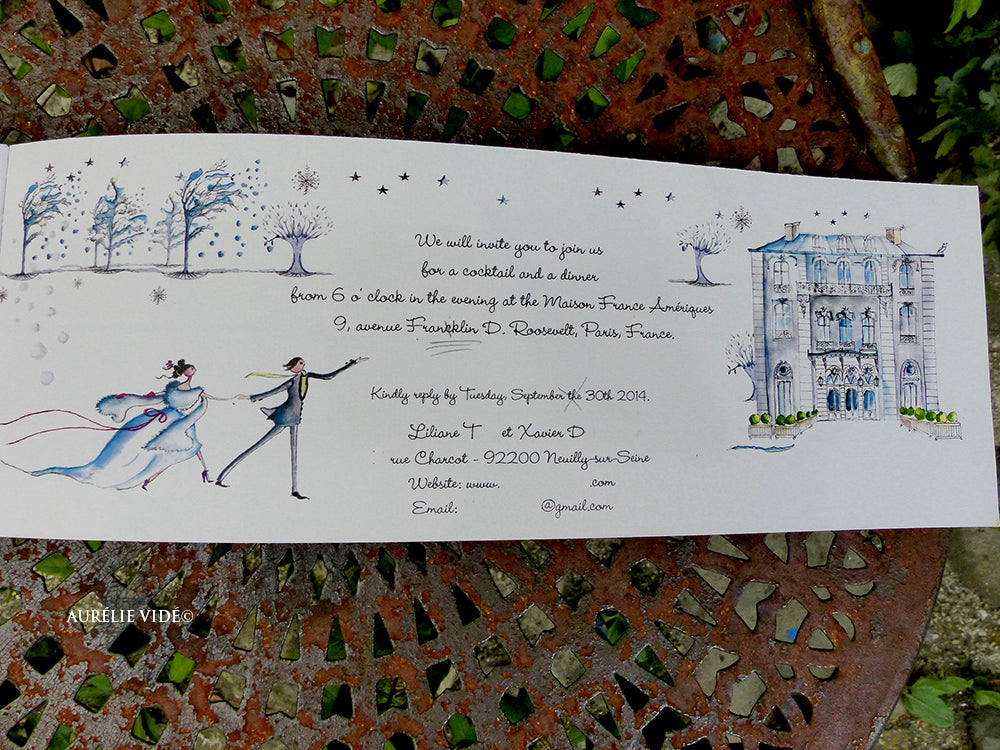 We will invite you to join us
for a cocktail and a dinner
from 6 o' clock in the evening at the Maison France Amériques
9, avenue Franklin D. Roosevelt, Paris, France.
Kindly reply by Tuesday, September the 30th 2014.
Liliane T et Xavier D
rue Charcot - 92200 Neuilly-sur-Seine
Website: www. .com
Email: @gmail.com
AURÉLIE VIDÉ©